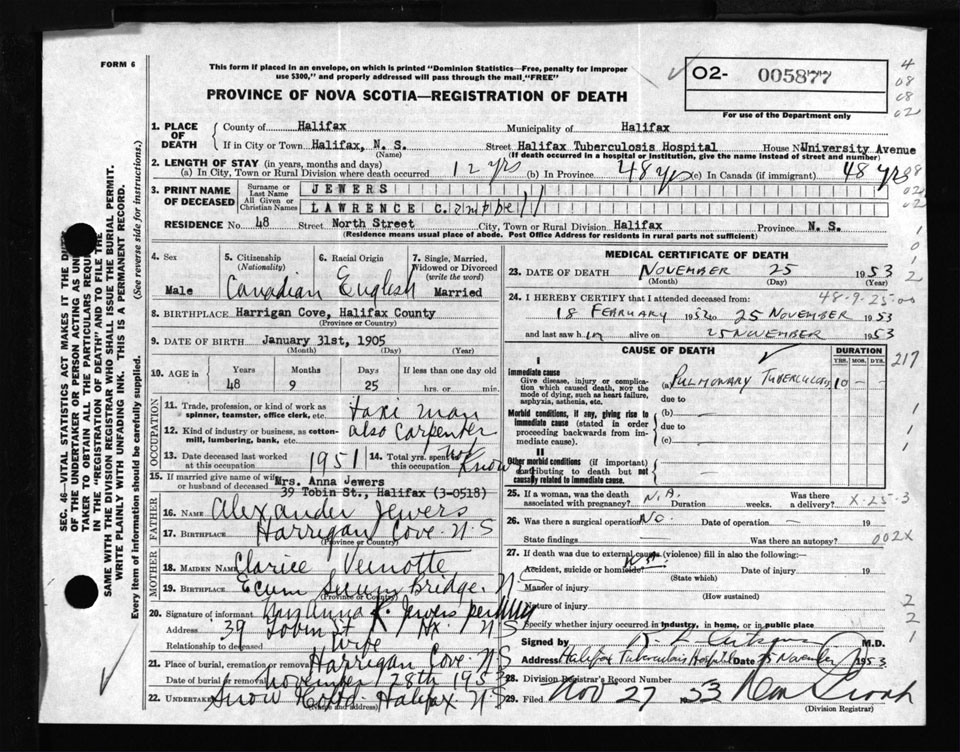 FORM 6
This form if placed in an envelope, on which is printed "Dominion Statistics—Free, penalty for improper
use $300," and properly addressed will pass through the mail "FREE"
PROVINCE OF NOVA SCOTIA—REGISTRATION OF DEATH
O2- 005877
For use of the Department only
4
08
08
02
1. PLACE OF DEATH
County of Halifax Municipality of Halifax
If in City or Town Halifax, N. S. Street Halifax Tuberculosis Hospital House No University Avenue
(Name) (If death occurred in a hospital or institution, give the name instead of street and number)
2. LENGTH OF STAY (in years, months and days)
(a) In City, Town or Rural Division where death occurred 12 yrs (b) In Province 48 yrs (c) In Canada (if immigrant) 48 yrs
3. PRINT NAME OF DECEASED
Surname or Last Name JEWERS
All Given or Christian Names LAWRENCE C.ampbell
RESIDENCE No. 48 Street North Street City, Town or Rural Division Halifax Province N. S.
(Residence means usual place of abode. Post Office Address for residents in rural parts not sufficient)
4. Sex
Male
5. Citizenship
(Nationality)
Canadian
6. Racial Origin
English
7. Single, Married, Widowed or Divorced
(write the word)
Married
8. BIRTHPLACE Harrigan Cove, Halifax County
(Province or Country)
9. DATE OF BIRTH January 31st, 1905
(Month) (Day) (Year)
10. AGE in
Years Months Days If less than one day
48 9 25 hrs. or min.
OCCUPATION
11. Trade, profession, or kind of work as
spinner, teamster, office clerk, etc.
taxi man
12. Kind of industry or business, as cotton-
mill, lumbering, bank, etc.
also Carpenter
13. Date deceased last worked
at this occupation 1951
14. Total yrs. spent
in this occupation Know
15. If married give name of wife
or husband of deceased Mrs. Anna Jewers
39 Tobin St., Halifax (3-0518)
FATHER
16. NAME Alexander Jewers
17. BIRTHPLACE Harrigan Cove. N.S
(Province or Country)
MOTHER
18. MAIDEN NAME Clarice Veinotte
19. BIRTHPLACE Ecum Secum Bridge. N.S
(Province or Country)
20. Signature of informant Mrs Anna K. Jewers
Address 39 Tobin St Hx. N S
Relationship to deceased Wife
21. Place of burial, cremation or removal Harrigan Cove. N.S
Date of burial or removal November 28th 1953
22. Undertaker Snow Halifax. N.S
(Name and address)
MEDICAL CERTIFICATE OF DEATH
23. DATE OF DEATH NOVEMBER 25 1953
(Month) (Day)
24. I HEREBY CERTIFY that I attended deceased from: 48-9-25-00
18 FEBRUARY 1952 to 25 NOVEMBER 1953
and last saw him alive on 25 NOVEMBER 1953
CAUSE OF DEATH
DURATION
YRS. MOS. DYS.
217
I
Immediate cause
Give disease, injury or complica-
tion which caused death, NOT the
mode of dying, such as heart failure,
asphyxia, asthenia, etc.
(a) PULMONARY TUBERCULOSIS 10 — —
due to
Morbid conditions, if any, giving rise to
immediate cause (stated in order
proceeding backwards from im-
mediate cause).
(b)
due to
(c)
II
Other morbid conditions (if important)
contributing to death but not
causally related to immediate cause.
25. If a woman, was the death
associated with pregnancy? N.A. Duration weeks. Was there
a delivery?
X-25-3
26. Was there a surgical operation? No. Date of operation — 19
State findings — Was there an autopsy?
002X
27. If death was due to external causes (violence) fill in also the following:—
Accident, suicide or homicide? Date of injury 19
(State which)
Manner of injury
(How sustained)
Nature of injury
Specify whether injury occurred in industry, in home, or in public place
Signed by M.D.
Address Halifax Tuberculosis Hospital Date 25 November 1953
28. Division Registrar's Record Number
29. Filed Nov 27 1953
(Division Registrar)
SEC. 46—VITAL STATISTICS ACT MAKES IT THE
OF THE UNDERTAKER OR PERSON ACTING AS
TAKER TO OBTAIN ALL THE PARTICULARS
IN THE "REGISTRATION OF DEATH" AND TO FILE THE
SAME WITH THE DIVISION REGISTRAR WHO SHALL ISSUE THE BURIAL PERMIT.
WRITE PLAINLY WITH UNFADING INK. THIS IS A PERMANENT RECORD.
Every item of information should be carefully supplied. (See reverse side for instructions.)